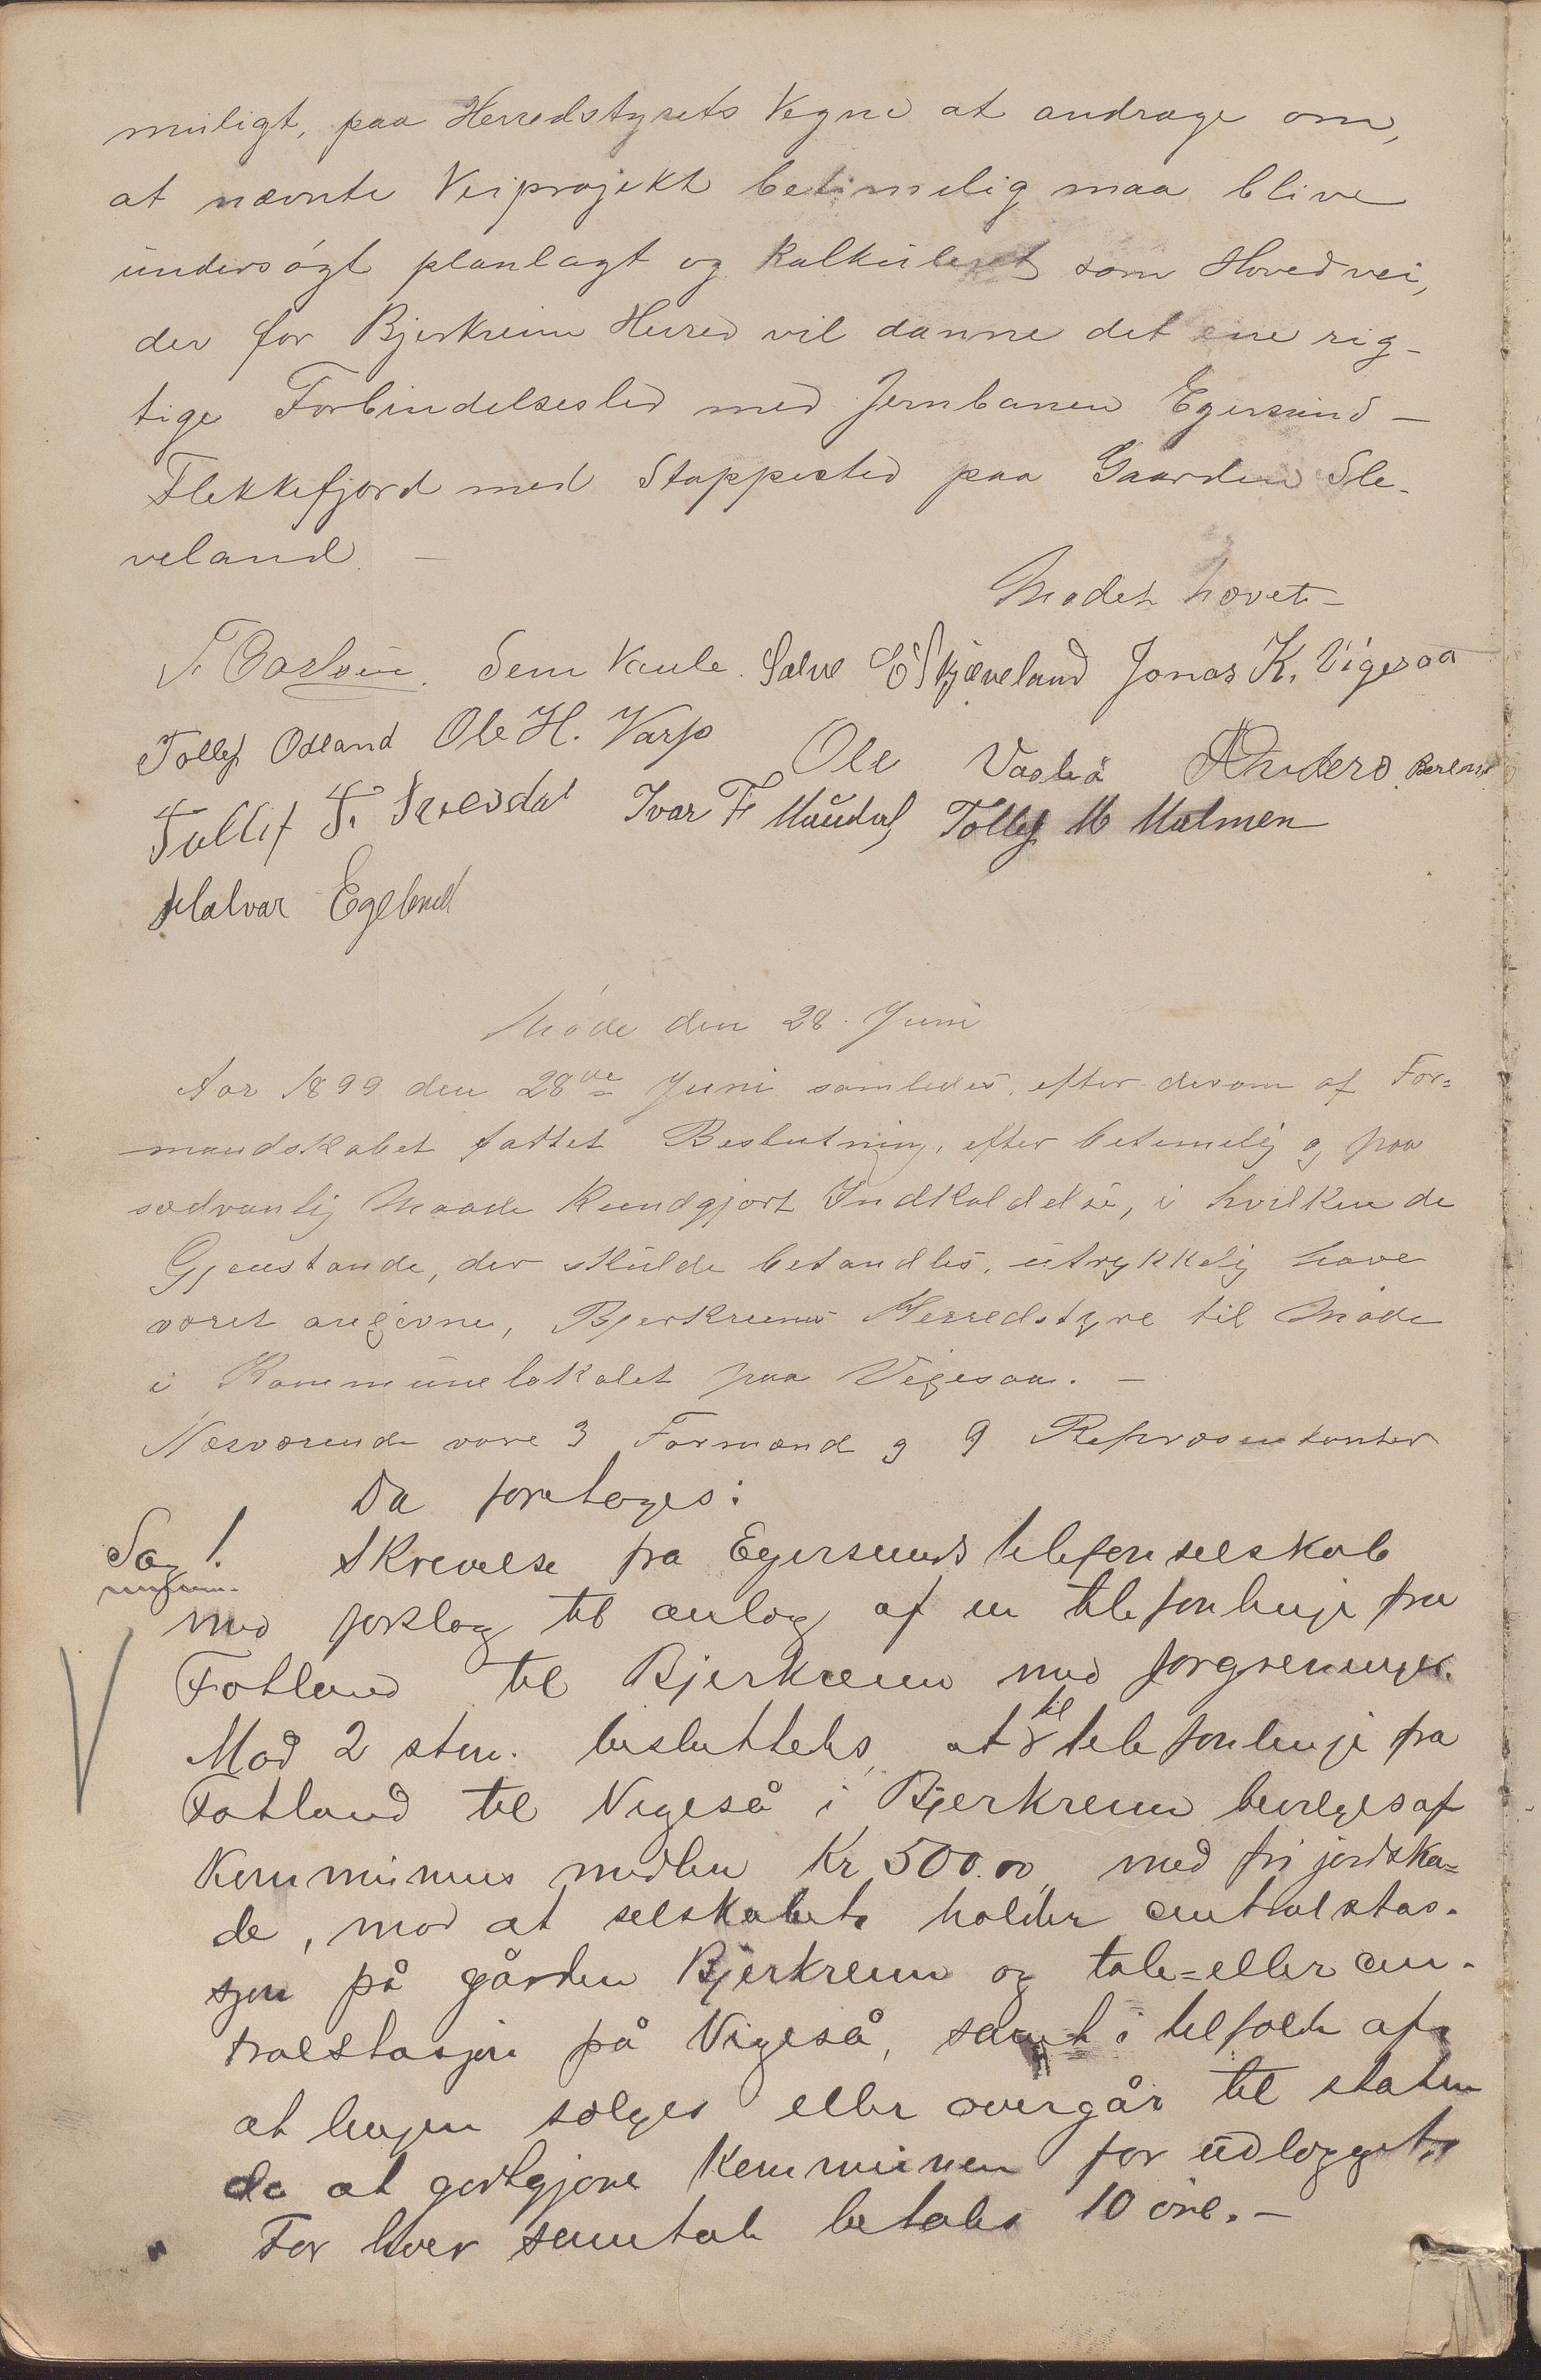 muligt, paa Herredstyrets Vegne at andrage om,
at nævnte Veiprojekt betimelig maa blive
undersøgt planlagt og kalkuleret som Hovedvei,
der for Bjerkreim Herred vil danne det ene rig-
tige Forbindelsesled med Jernbanen Egersund -
Flekkefjord med Stoppested paa Gaarden Sle-
veland. -
Mødet hævet -
Sem Vaule. Salve E Skjæveland Jonas K. Vigesaa
Tollef Odland Ole H. Varp Ole Vasbø Anders Berentsen
Tollif T. Ivar F Maudal Tollef M Malmen
Halvar Egeland
Møde den 28. Juni
Aar 1899 den 28de Juni samledes, efter derom af For=
mandskabet fattet Beslutning, efter betimelig og paa
sædvanlig Maade kundgjort Indkaldelse, i hvilken de
Gjenstande, der skulde behandles, utrykkelig have
været angivne, Bjerkreims Herredstyre til Møde
i Kommunelokalet paa Vigesaa. -
Nærværende vare 3 Formænd og 9 Repræsentanter
Da foretoges:
Sag 1. Skrevelse fra Egersunds telefonselskab
med forslag til anlæg af en telefonlinje fra
Fotland til Bjerkreim med forgreninger.
Mod 2 stem. besluttedes, at til telefonlinje fra
Fotland til Vigeså i Bjerkreim bevilges af
Kommunens midler Kr 500.00 med fri jordska=
de, mod at selskabet holder centralstas-
sjon på gården Bjerkreim og tale=eller cen-
tralstasjon på Vigeså, samt i tilfælde af
at linjen sælges eller overgår til staten
da at godtgjøre Kommunen for udlægget.
For hver samtale betales 10 øre. -